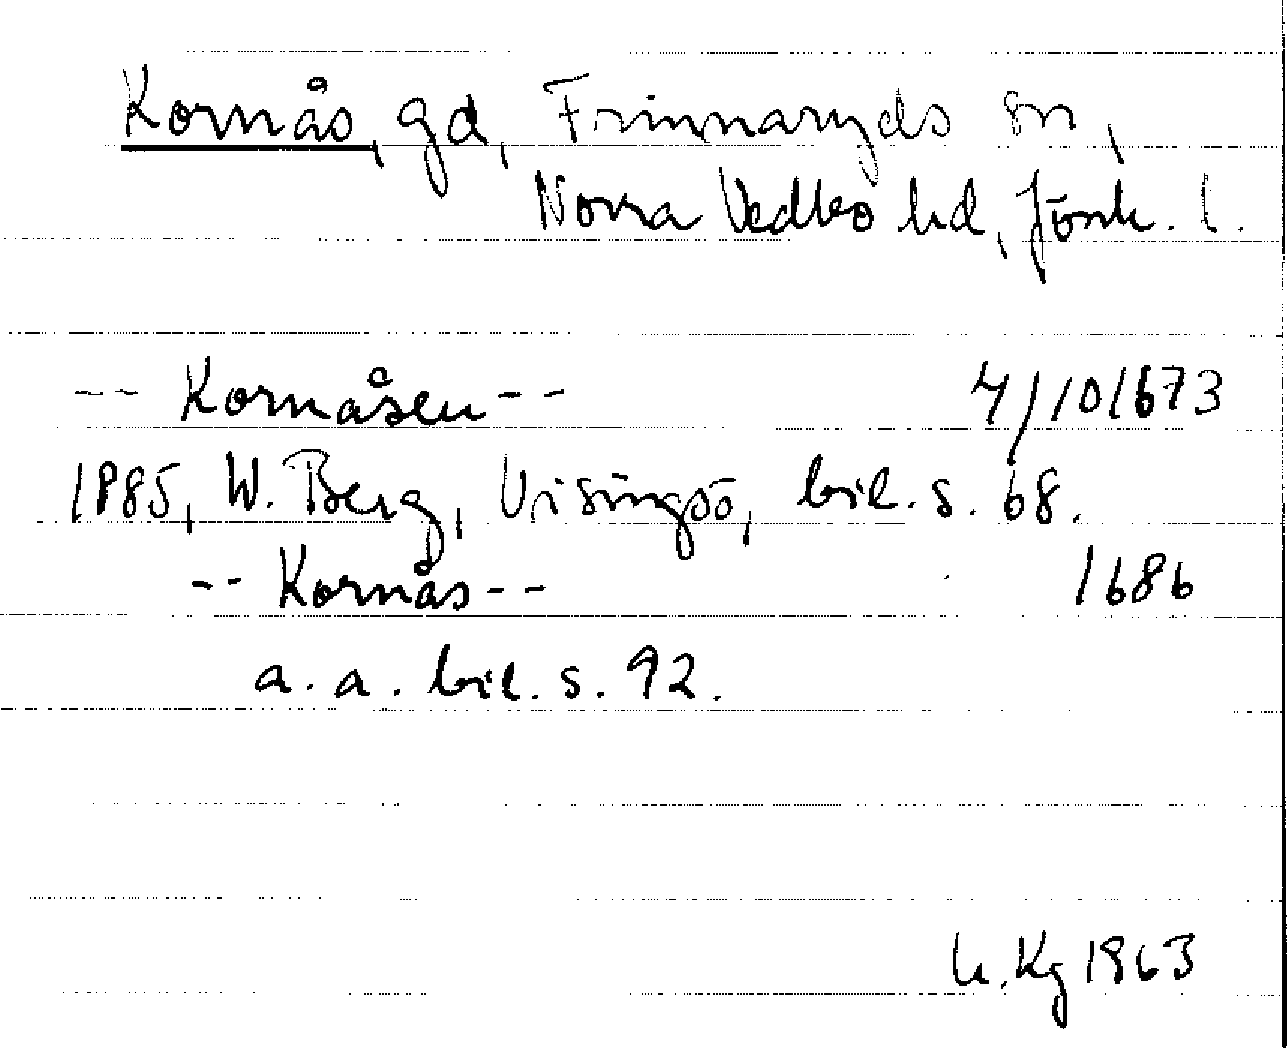 Kornås, gd, Frinnaryds sn,
Norra Vedbo hd, Jönk. l.
-- Kornåsen -- 4/10 1673
1885, W. Berg, Visingsö, bil. s. 68.
-- Kornås -- 1686
a. a. bil. s. 92.
Kg 1963